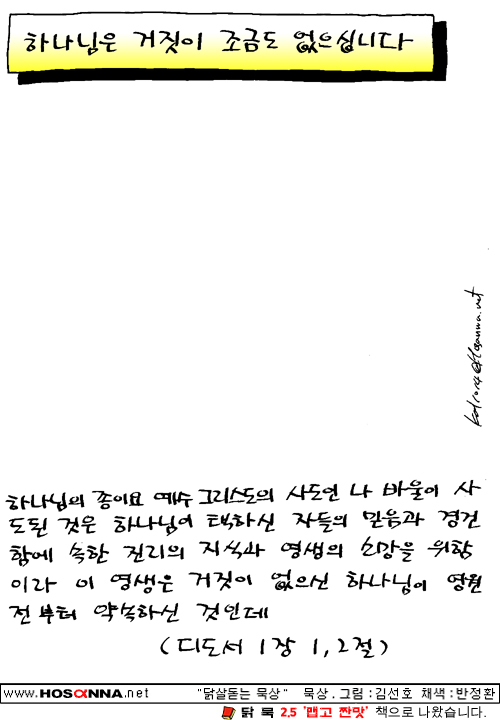 하나님은 거짓이 조금도 없으십니다
하나님의 종이요 예수 그리스도의 사도인 나 바울이 사
도된 것은 하나님이 택하신 자들의 믿음과 경건
함에 속한 진리의 지식과 영생의 소망을 위함
이라 이 영생은 거짓이 없으신 하나님이 영원
전부터 약속하신 것인데
(디도서 1장 1,2절)
www.HOSANNA.net "닭살돋는 묵상" 묵상.그림:김선호 채색:반정환
닭묵 2.5 '맵고 짠맛' 책으로 나왔습니다.